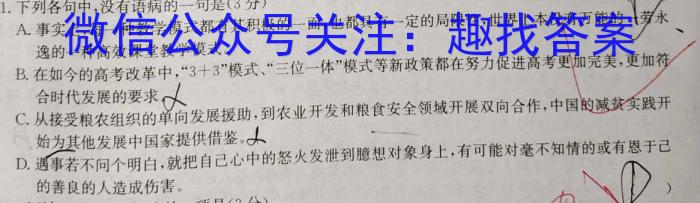 1.下列各句中,没有语病的一句是(3分)
微信公众号关注：趣找答案
A. 事实
模式都有其积极的一面,也都具有一定的局限
劳永
逸的一种高效课堂教学模式。
B. 在如今的高考改革中,“3+3”模式、“三位一体”模式等新政策都在努力促进高考更加完美,更加符
合时代发展的要求。
C. 从接受粮农组织的单向发展援助,到农业开发和粮食安全领域开展双向合作,中国的减贫实践开
始为其他发展中国家提供借鉴。
D. 遇事若不问个明白,就把自己心中的怒火发泄到臆想对象身上,有可能对毫不知情的或有恩于己
的善良的人造成伤害。